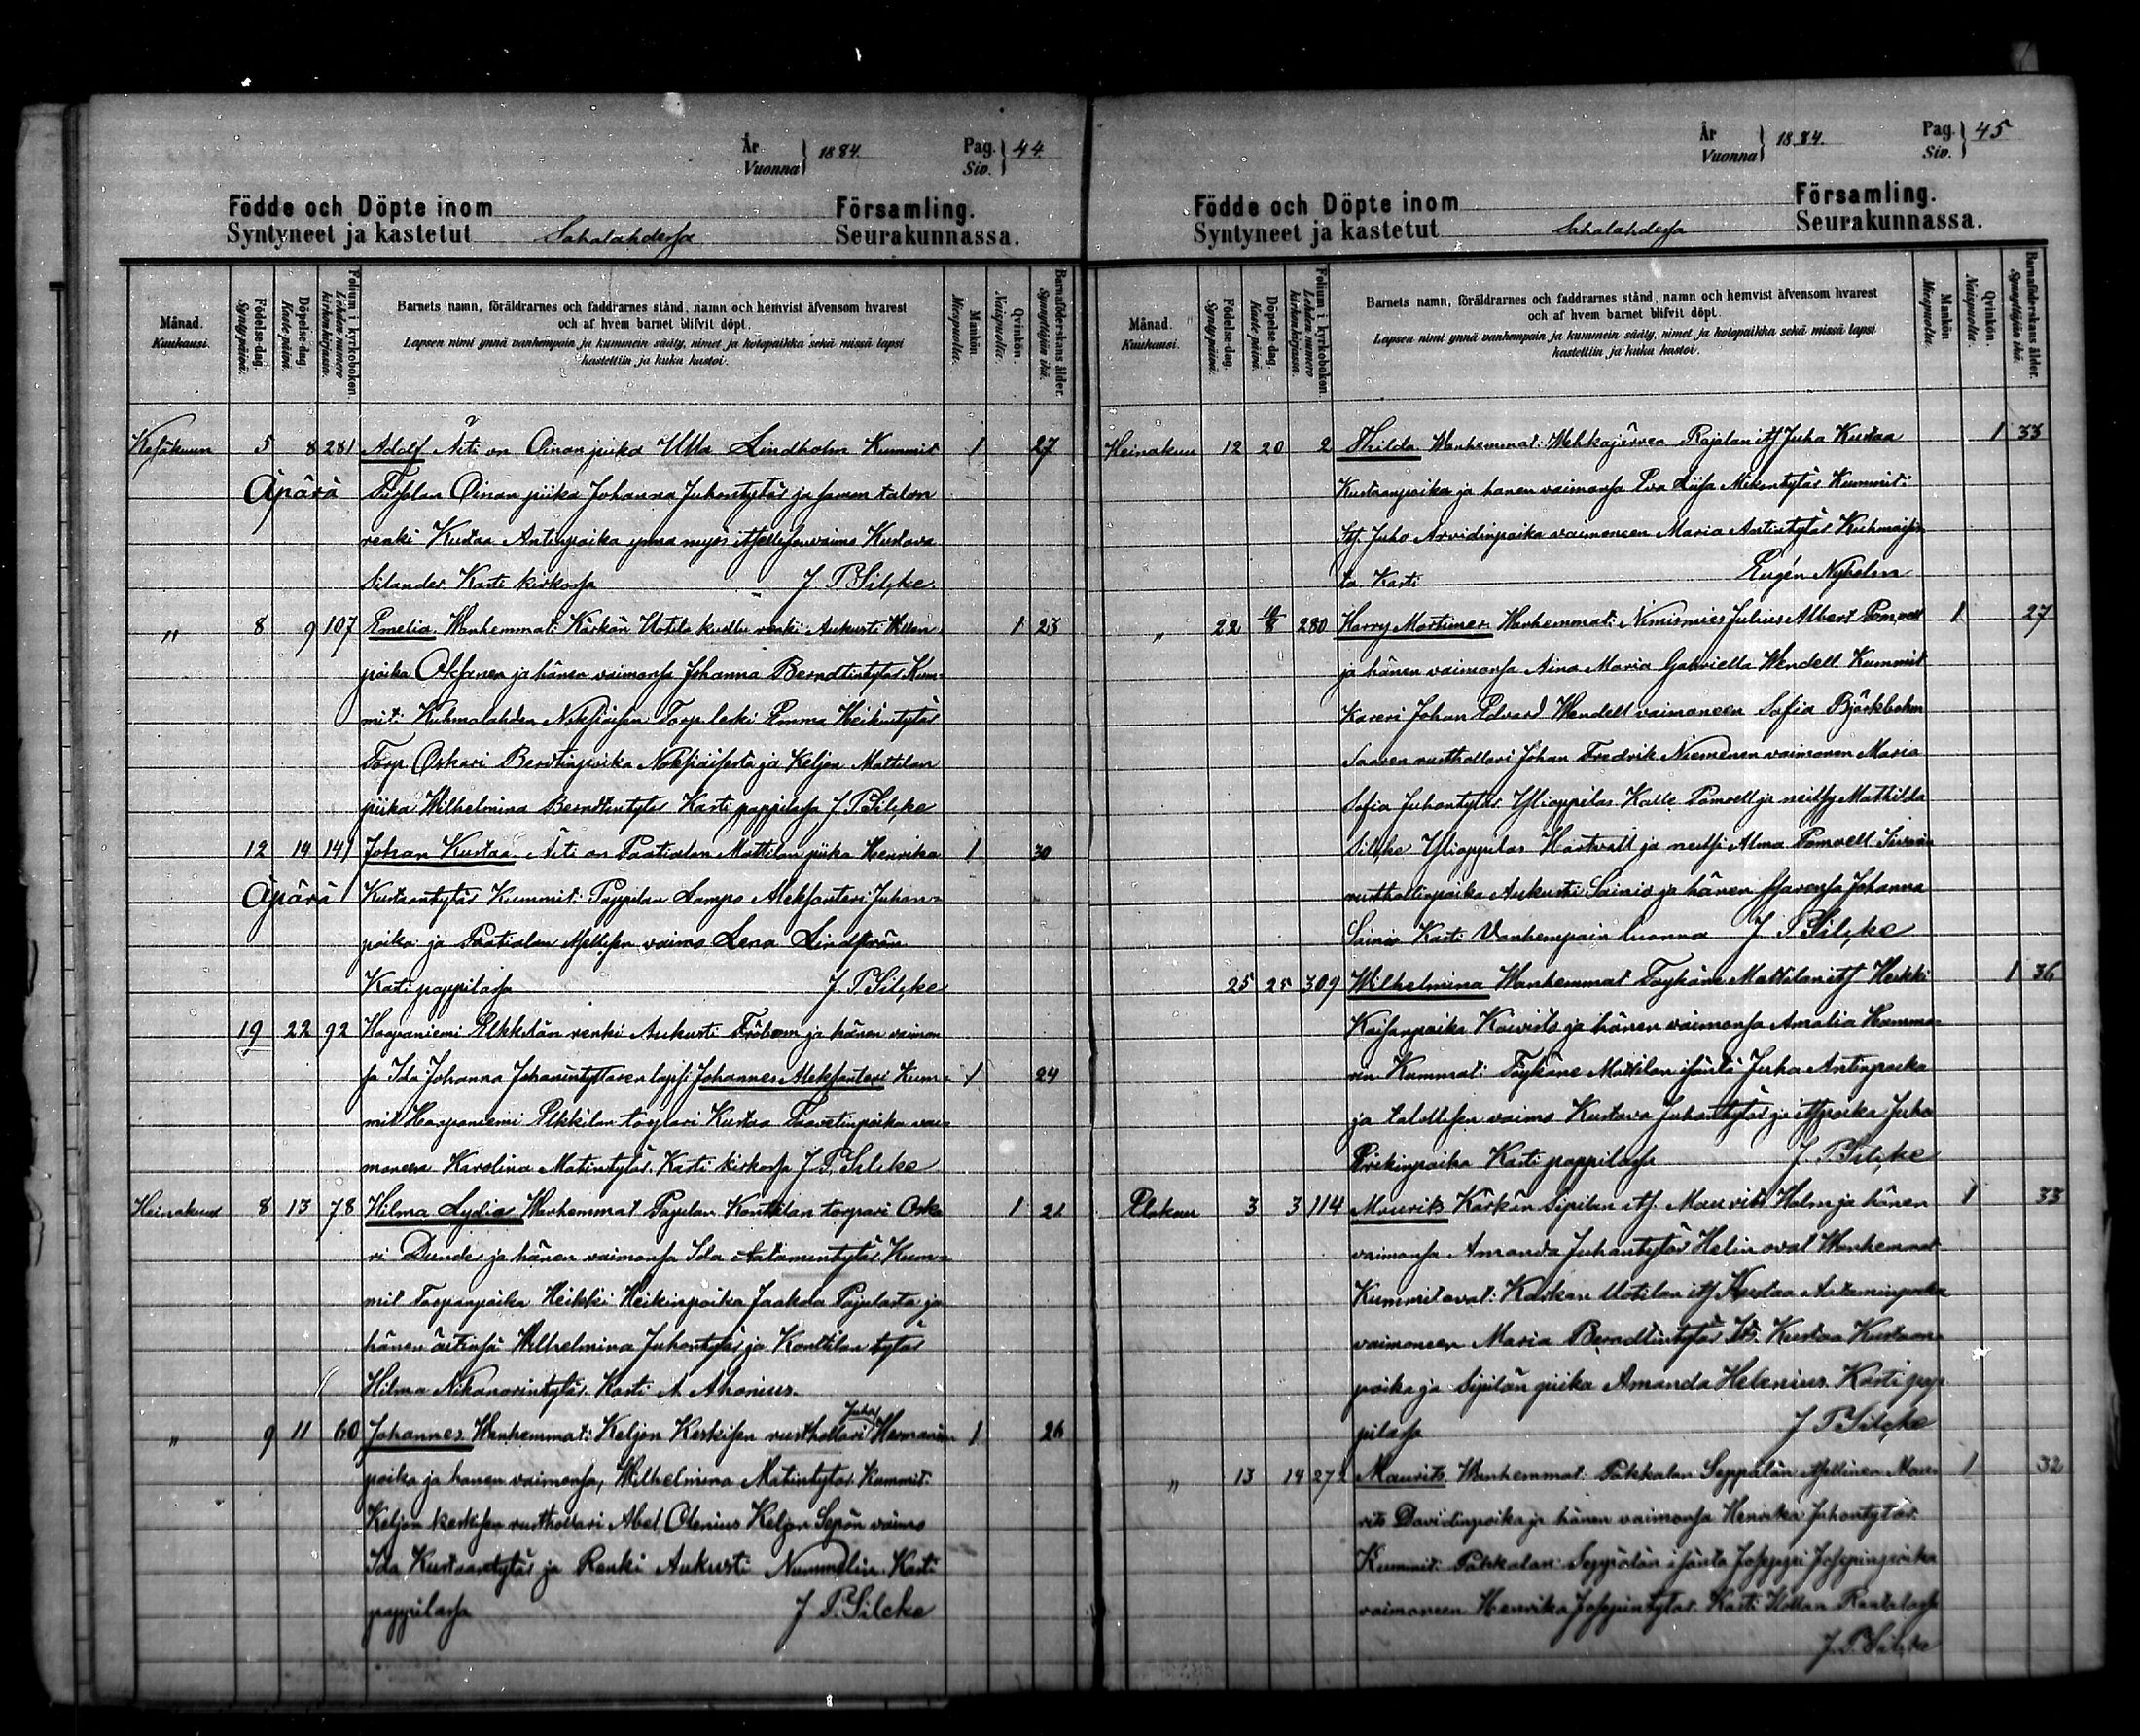 År
Vuonna } 1884.
Pag.
Siv. } 44.
Födde och Döpte inom Församling.
Syntyneet ja kastetut Sahalahdessa Seurakunnassa.
Månad.
Kuukausi.
Födelse-dag.
Syntypäivä.
Döpelse-dag.
Kaste päivä.
Folium i kyrkoboken.
Lehden numero kirkonkirjassa.
Barnets namn, föräldrarnes och faddrarnes stånd, namn och hemvist äfvensom hvarest
och af hvem barnet blifvit döpt.
Lapsen nimi ynnä vanhempain ja kummein sääty, nimet ja kotopaikka sekä missä lapsi
kastettiin ja kuka kastoi.
Mankön.
Miespuolta.
Qvinkön.
Naispuolta.
Barnaföderskans ålder.
Synnyttäjän ikä.
Kesäkuun 5 8 281 Adolf Äiti on Oinan piika Ulla Lindholm Kummit 1 27
Äpärä Oinan piika Johanna Juhontytär ja saman talon
renki Kustaa Antinpoika ynnä myös itsellisenvaimo Kustava
Silander. Kasti kirkossa J. P. Silcke.
" 8 9 107 Emelia. Wanhemmat: Kärkän Uotila renki Aukusti 1 23
poika Oksanen ja hänen vaimonsa Johanna Berndtintytär Kum-
mit: Kuhmalahden Torp. leski Emma Heikintytär
Torp. Oskari Berdtinpoika ja Keljon Mattilan
piika Wilhelmina Berndtintytär Kasti pappilassa J. P. Silcke
12 14 141 Johan Kustaa Äiti on Paatialan Mattilan piika Henrika 1 30
Äpärä Kustaantytär Kummit: Pappilan Lampo Aleksanteri Juhan-
poika ja Paatialan itsellisen vaimo Lena Lindström
Kasti pappilassa J. P. Silcke
19 22 92 Haapaniemi Elkkilän renki Aukusti Fribom ja hänen vaimon
sa Ida Johanna lapsi Johannes Aleksanteri Kum- 1 24
mit Haapaniemi Elkkilan torppari Kustaa Taavetinpoika vai-
moneen Karolina Matintytär. Kasti kirkossa J. P. Silcke
Heinäkuu 8 13 78 Hilma Lydia Wanhemmat Pajulan Konttilan torpari Oska 1 21
ri Dunder ja hänen vaimonsa Ida Aatamintytär. Kum-
mit Torparipoika Heikki Heikinpoika Jaakola Pajulasta ja
hänen äitinsä Wilhelmina Juhontytär ja Konttilan tytär
Hilma Nikanorintytär. Kasti A. Ahonius.
" 9 11 60 Johannes. Wanhemmat: Keljon Keskisen rusthollari Juha Hermannin 1 26
poika ja hänen vaimonsa, Wilhelmina Matintytär Kummit:
Keljon keskisen rusthollari Abel Olenius Keljon Sepän vaimo
Ida Kustaantytär ja Renki Aukusti Nummelin. Kasti
pappilassa J. P. Silcke
År
Vuonna } 1884.
Pag.
Siv. } 45
Födde och Döpte inom Församling.
Syntyneet ja kastetut Sahalahdessa Seurakunnassa.
Månad.
Kuukausi.
Födelse-dag.
Syntypäivä.
Döpelse-dag.
Kaste päivä.
Folium i kyrkoboken.
Lehden numero kirkonkirjassa.
Barnets namn, föräldrarnes och faddrarnes stånd, namn och hemvist äfvensom hvarest
och af hvem barnet blifvit döpt.
Lapsen nimi ynnä vanhempain ja kummein sääty, nimet ja kotopaikka sekä missä lapsi
kastettiin ja kuka kastoi.
Mankön
Miespuolta.
Qvinkön.
Naispuolta.
Barnaföderskans ålder.
Synnyttäjän ikä.
Heinäkuu 12 20 2 Hilda. Wanhemmat: Wehkajärven Rajalan its Juha Kustaa 1 33
Kustaanpoika ja hänen vaimonsa Eva Liisa Mikontytär Kummit:
Its. Juho Arvidinpoika vaimoneen Maria Antintytär
ta. Kasti Eugén Nyholm
" 22 10/8 280 Harry Mortimer. Wanhemmat: Nimismies Julius Albert Pomoell 1 27
ja hänen vaimonsa Aina Maria Gabriella Wendell Kummit
Johan Edvard Wendell vaimoneen Sofia Björkbohm
Saaren rusthollari Johan Fredrik Nieminen vaimonen Maria
Sofia Juhontytär. Ylioppilas Kalle Pomoell ja neitsy Mathilda
Silcke Ylioppilas Hartvall ja neitsi Alma Pomoell
rusthollinpoika Aukusti Sainio ja hänen sisarensa Johanna
Sainio Kasti Vanhempain luonna J. P. Silcke
25 25 309 Wilhelmina Wanhemmat Mattilan its Heikki 1 36
Kaisanpoika Koivisto ja hänen vaimonsa Amalia
Kummit: Mattilan isäntä Juha Antinpoika
ja vaimo Kustava Juhontytär ja Juha
Erikinpoika Kasti pappilassa J. P. Silcke
Elokuu 3 3 114 Maurits Kärkän Sipilan its. Maurits Holm ja hänen 1 33
vaimonsa Amanda Juhantytär Helin ovat Wanhemmat
Kummit ovat: Kärkän Uotilan its Kustaa Aataminpoika
vaimoneen Maria Berndtintytär Its. Kustaa Kustaan-
poika ja Sipilän piika Amanda Helenius. Kasti pap
pilassa J. P. Silcke
" 13 14 272 Maurits. Wanhemmat: Pakkalan Seppälän itsellinen Mau- 1 32
rits Davidinpoika ja hänen vaimonsa Henrika Juhontytär.
Kummit: Pakkalan Seppälän isäntä Joseppi Josepinpoika
vaimoneen Henrika Josepintytär. Kasti
J. P. Silcke